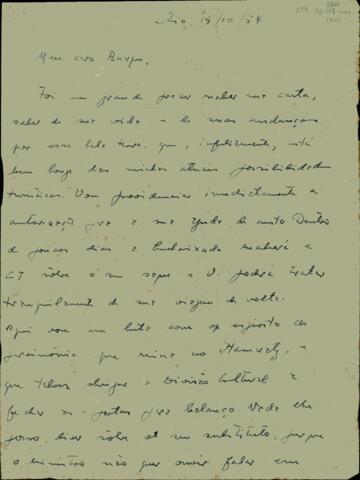 Rio, 18/10/54
Meu caro Buarque,
Foi um grande prazer receber sua carta,
saber de sua vida e de suas andanças
por essa bela terra que, infelizmente, está
bem longe das minhas atuais possibilidades
turísticas. Vou providenciar imediatamente a
autorização para a sua ajuda de custo. Dentro
de poucos dias a Embaixada receberá a
CT sôbre o seu e V. poderá tratar
tranquilamente de sua viagem de volta.
Aqui vou em luta com o espírito de
parcimônia que reina no Itamaraty, e
que talvez obrigue a Divisão Cultural a
fechar as portas para balanço. Nada lhe
posso dizer sôbre o seu substituto, porque
o ministro não quer ouvir falar em